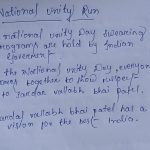 National Unity Run
National Unity Day swearing
programs are held by Indian
Government.
the National Unity Day, everyone
comes together to show respect
to Sardar vallabh bhai patel.
Sardar vallabh bhai patel has a
vision for the best India.